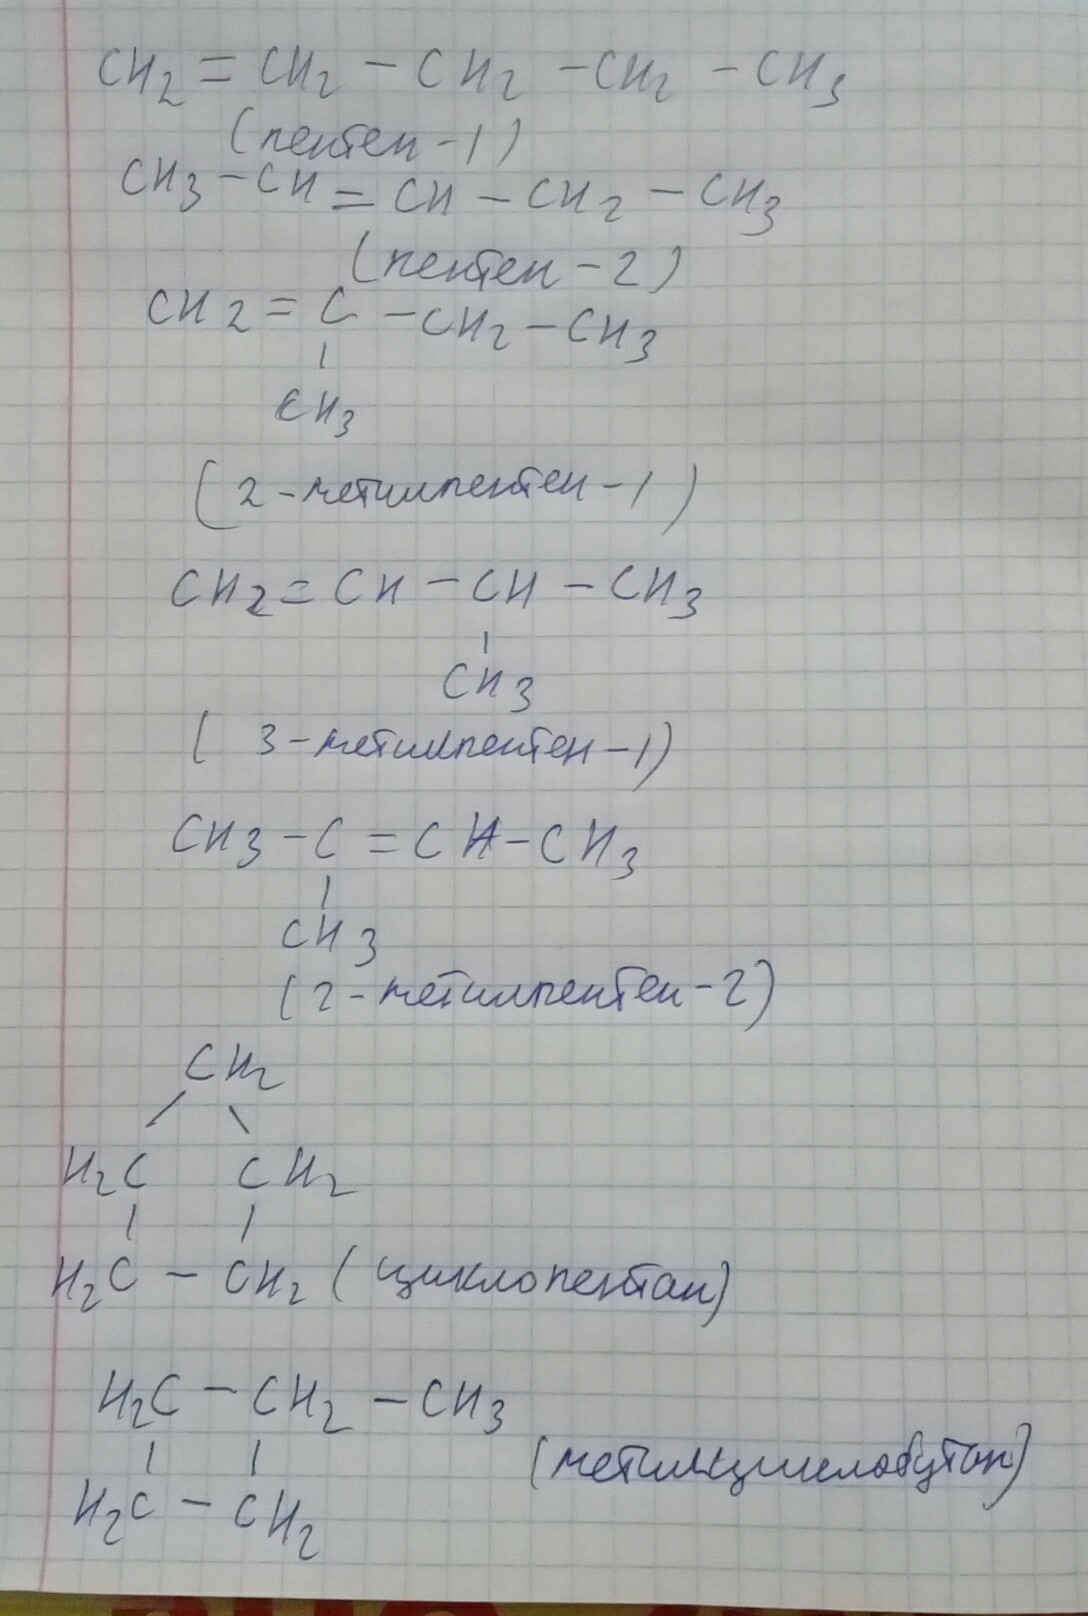 CH2 = CH2 - CH2 - CH2 - CH3
(пентен-1)
CH3 - CH = CH - CH2 - CH3
(пентен-2)
CH2 = C - CH2 - CH3
|
CH3
(2-метилпентен-1)
CH2 = CH - CH - CH3
|
CH3
(3-метилпентен-1)
CH3 - C = CH - CH3
|
CH3
(2-метилпентен-2)
CH2
/ \
H2C CH2
| |
H2C - CH2 (циклопентан)
H2C - CH2 - CH3
| |
(метилциклобутан)
H2C - CH2